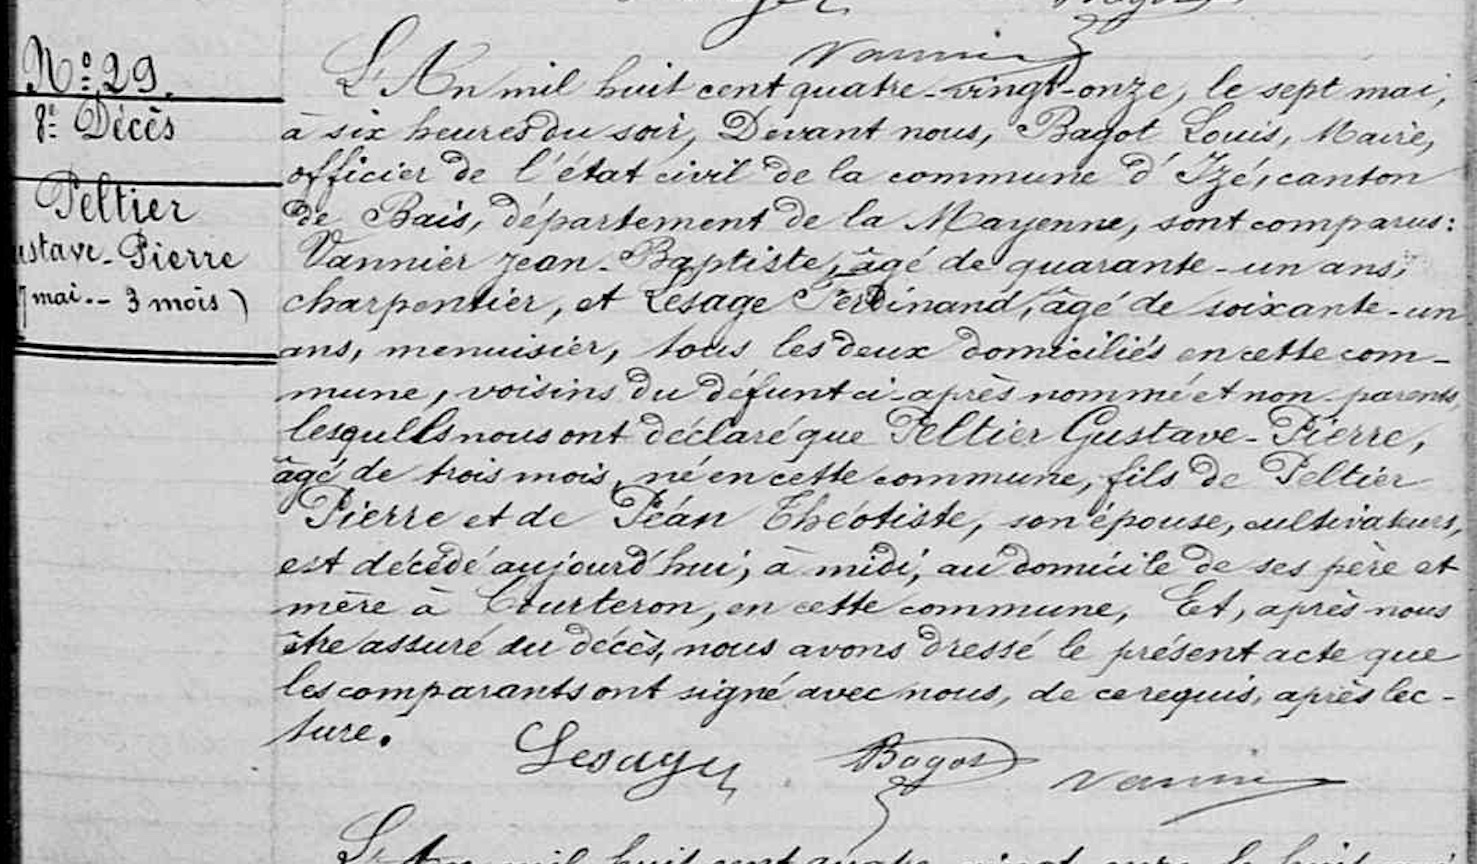 Vannier
Nº 29.
8e Décès
Peltier
ustave-Pierre
7 mai. - 3 mois)
L'An mil huit cent quatre-vingt-onze, le sept mai,
à six heures du soir, Devant nous, Bagot Louis, Maire,
officier de l'état civil de la commune d'Izé, canton
de Bais, département de la Mayenne, sont comparus:
Vannier Jean-Baptiste, âgé de quarante-un ans,
charpentier, et Lesage Ferdinand, âgé de soixante-un
ans, menuisier, tous les deux domiciliés en cette com-
mune, voisins du défunt ci-après nommé et non-parents
lesquells nous ont déclaré que Peltier Gustave-Pierre,
âgé de trois mois, né en cette commune, fils de Peltier
Pierre et de Péan Théotiste, son épouse, cultivateurs,
est décédé aujourd'hui, à midi, au domicile de ses père et
mère à Courteron, en cette commune, Et, après nous
être assuré du décès, nous avons dressé le présent acte que
les comparants ont signé avec nous, de ce requis, après lec-
ture.
Lesage Bagot Vannier
L'An mil huit cent quatre-vingt-onze le huit